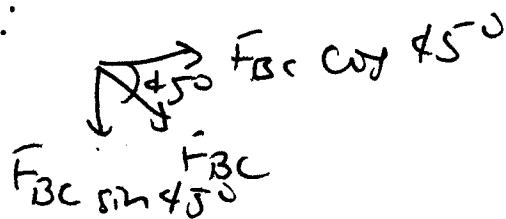 :
F_BC cos 45°
45°
F_BC
F_BC sin 45°